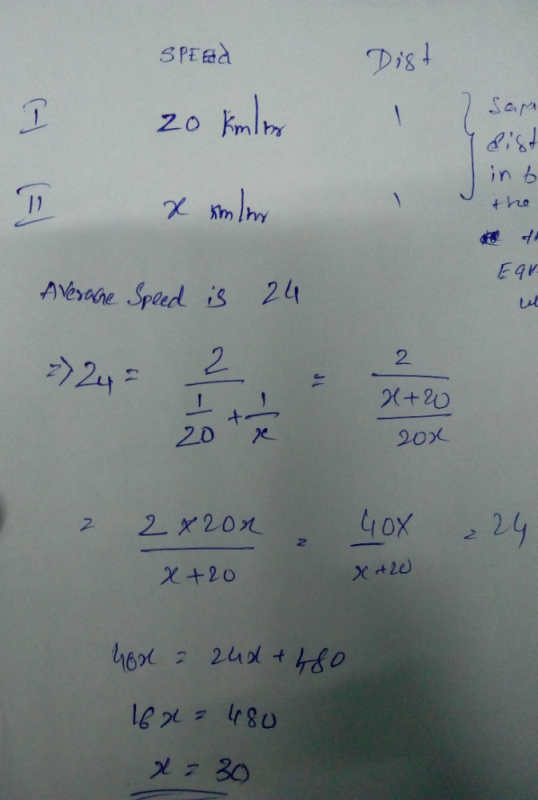 SPEED Dist
I 20 km/hr 1
II x km/hr 1
in
the
Average Speed is 24
=> 24 = 2/(1/20 + 1/x) = 2/((x+20)/20x)
= (2 x 20x)/(x+20) = 40x/(x+20) = 24
40x = 24x + 480
16x = 480
x = 30